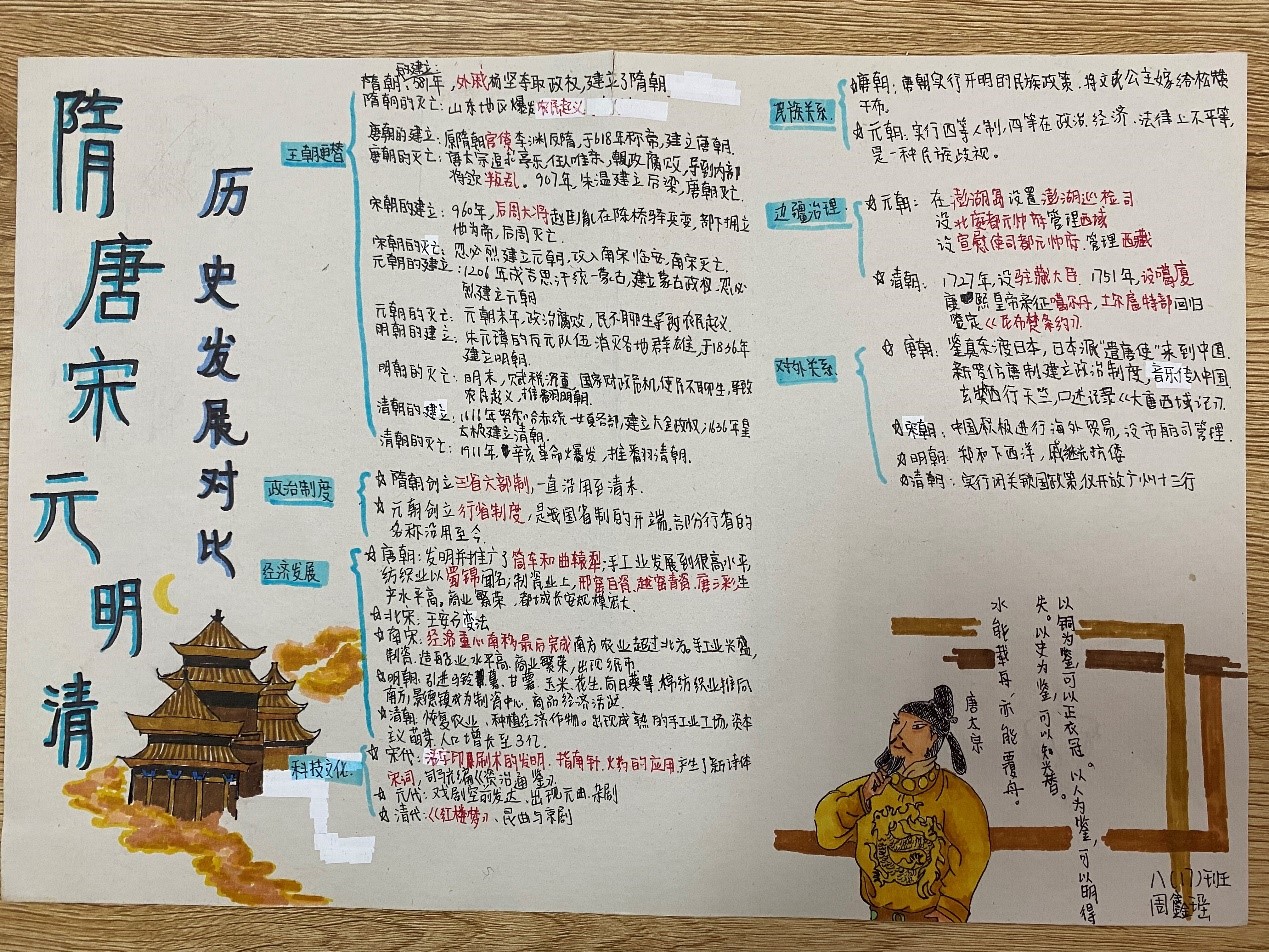 隋唐宋元明清
历史发展对比
王朝更替
的建立:
隋朝:581年,外戚杨坚夺取政权,建立了隋朝
隋朝的灭亡:山东地区爆发农民起义
唐朝的建立:原隋朝官僚李渊反隋,于618年称帝,建立唐朝.
唐朝的灭亡:唐太宗追求享乐,任人唯亲,朝政腐败,导到内部
将领叛乱。907年,朱温建立后梁,唐朝灭亡.
宋朝的建立:960年,后周大将赵匡胤在陈桥驿兵变,部下拥立
他为帝,后周灭亡.
宋朝的灭亡:忽必烈建立元朝,攻入南宋临安,南宋灭亡.
元朝的建立:1206年成吉思汗统一蒙古,建立蒙古政权.忽必
烈建立元朝
元朝的灭亡:元朝末年,政治腐败,民不聊生导致农民起义.
明朝的建立:朱元璋的反元队伍消灭各地群雄,于1836年
建立明朝.
明朝的灭亡:明末,赋税沉重,国家财政危机,使民不聊生,导致
农民起义,推翻明朝.
清朝的建立:1616年努尔哈赤统一女真各部,建立大金政权;1636年皇
太极建立清朝.
清朝的灭亡:1911年.辛亥革命爆发,推番羽清朝.
政治制度
☆隋朝创立三省六部制,一直沿用至清末.
☆元朝创立行省制度,是我国省制的开端,部分行省的
名称沿用至今.
经济发展
☆唐朝:发明并推广了筒车和曲辕犁;手工业发展到很高水平,
纺织业以蜀锦闻名;制瓷业上,邢窑白瓷、越窑青瓷、唐三彩生
产水平高。商业繁荣,都城长安规模宏大.
☆北宋:王安石变法
☆南宋:经济重心南移最后完成南方农业超过北方.手工业兴盛,
制瓷、造船业水平高.商业繁荣,出现纸币.
☆明朝:引进马铃薯、甘薯、玉米、花生、向日葵等.棉纺织业推向
南方,景德镇成为制瓷中心.商品经济活跃.
☆清朝:恢复农业、种植经济作物。出现成熟的手工业工场,资本
主义萌芽.人口增长至3亿.
科技文化
☆宋代:活字印刷术的发明、指南针、火药的应用产生了新诗体
宋词,司马光编《资治通鉴》.
☆元代:戏剧空前发达、出现元曲、杂剧
☆清代:《红楼梦》、昆曲与京剧
民族关系
☆唐朝:唐朝实行开明的民族政策.将文成公主嫁给松赞
干布。
☆元朝:实行四等人制,四等在政治、经济、法律上不平等,
是一种民族歧视。
边疆治理
☆元朝:在澎湖岛设置澎湖巡检司
设北庭都元帅府管理西域
设宣慰使司都元帅府管理西藏
☆清朝:1727年,设驻藏大臣.1751年,设噶厦
康熙皇帝亲征噶尔丹,土尔扈特部回归
鉴定《尼布楚条约》.
对外关系
☆唐朝:鉴真东渡日本,日本派"遣唐使"来到中国.
新罗仿唐制建立政治制度,音乐传入中国.
玄奘西行天竺,口述记录《大唐西域记》.
☆宋朝:中国积极进行海外贸易,设市舶司管理.
☆明朝:郑和下西洋,戚继光抗倭
☆清朝:实行闭关锁国政策仅开放广州十三行
以铜为鉴,可以正衣冠。以人为鉴,可以明得
失。以史为鉴,可以知兴替。
水能载舟,亦能覆舟。
唐太宗
八(17)班